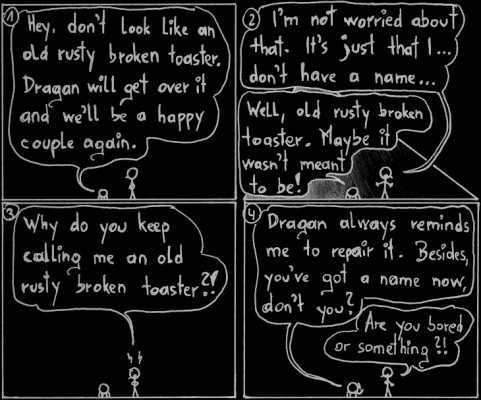 1
Hey, don't look like an
old rusty broken toaster.
Dragan will get over it
and we'll be a happy
couple again.
2
I'm not worried about
that. It's just that I...
don't have a name...
Well, old rusty broken
toaster. Maybe it
wasn't meant
to be!
3
Why do you keep
calling me an old
rusty broken toaster?!
4
Dragan always reminds
me to repair it. Besides,
you've got a name now,
don't you?
Are you bored
or something?!